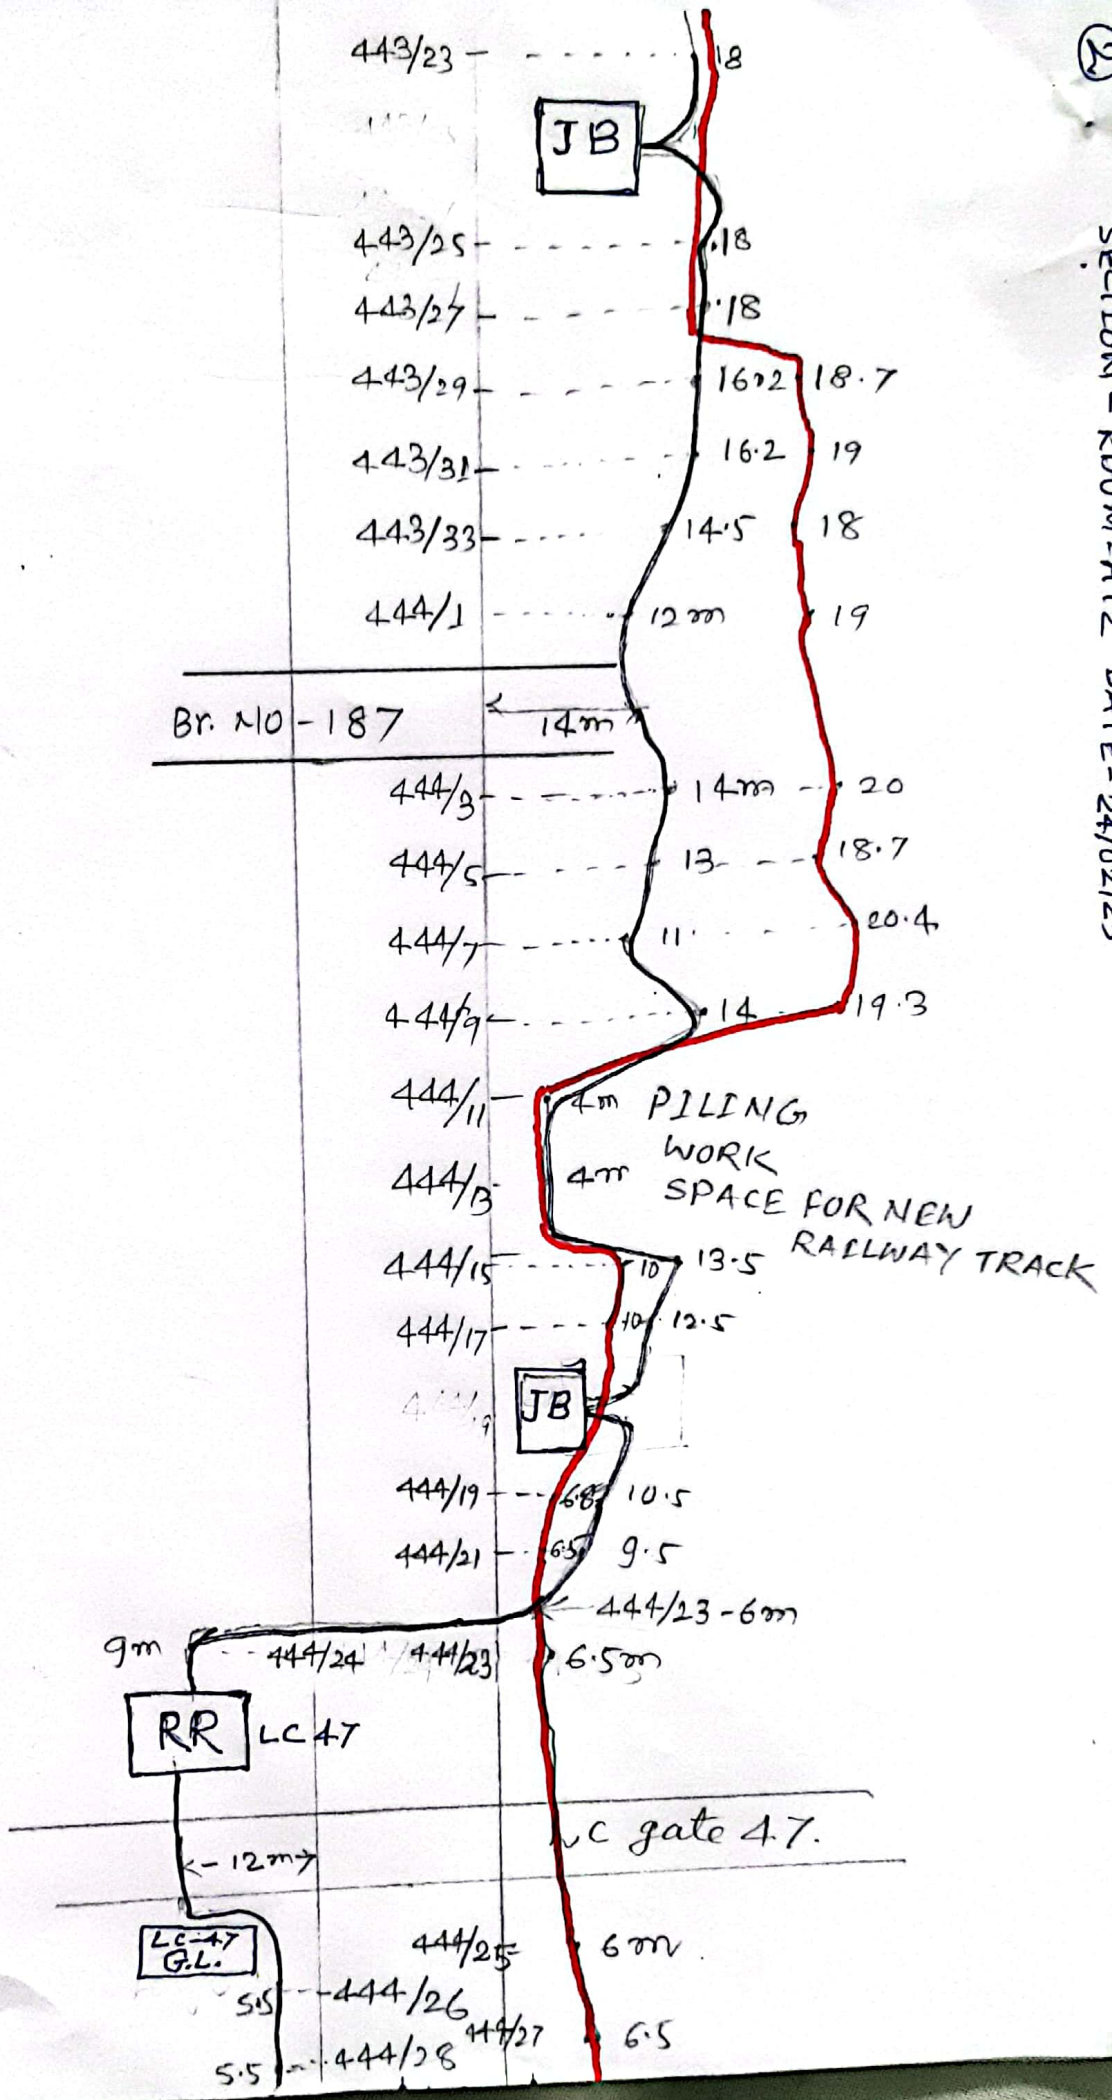 2
443/23 18
JB
443/25 18
443/27 18
443/29 16.2 18.7
443/31 16.2 19
443/33 14.5 18
444/1 12m 19
Br. NO-187 14m
444/3 14m 20
444/5 13 18.7
444/7 11 20.4
444/9 14 19.3
444/11 4m PILING
WORK
444/13 4m SPACE FOR NEW
RAILWAY TRACK
444/15 10 13.5
444/17 10 12.5
JB
444/19 6.8 10.5
444/21 6.5 9.5
444/23-6m
9m 444/24 444/23 6.5m
RR LC 47
LC gate 47.
12m
LC-47
G.L.
444/25 6m.
5.5 444/26
444/27 6.5
5.5 444/28
DATE-24/02/25